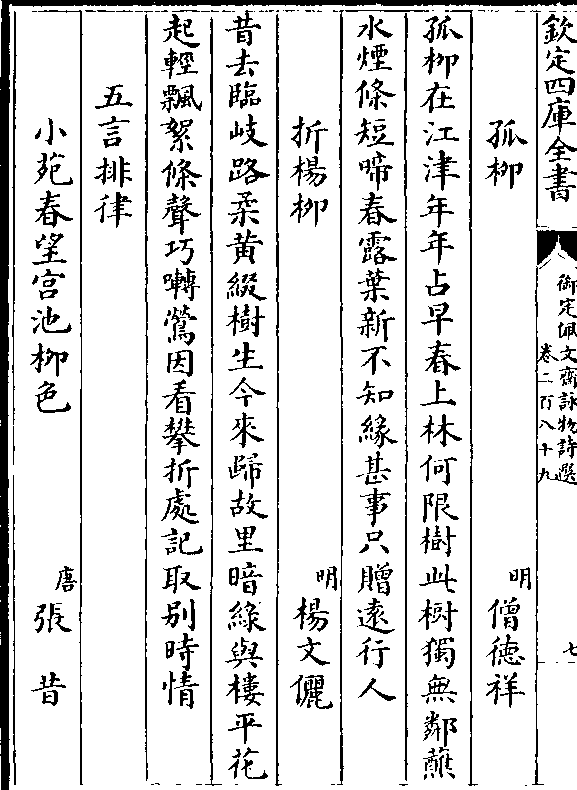 欽定四庫全書
御定佩文齋詠物詩選
卷二百八十九
七
孤柳
明
僧德祥
孤柳在江津年年占早春上林何限樹此樹獨無鄰蘸
水煙條短啼春露葉新不知緣甚事只贈遠行人
折楊柳
明
楊文儷
昔去臨歧路柔黃綴樹生今來歸故里暗綠與樓平花
起輕飄絮條聲巧囀鶯因看攀折處記取別時情
五言排律
小苑春望宮池柳色
唐
張昔